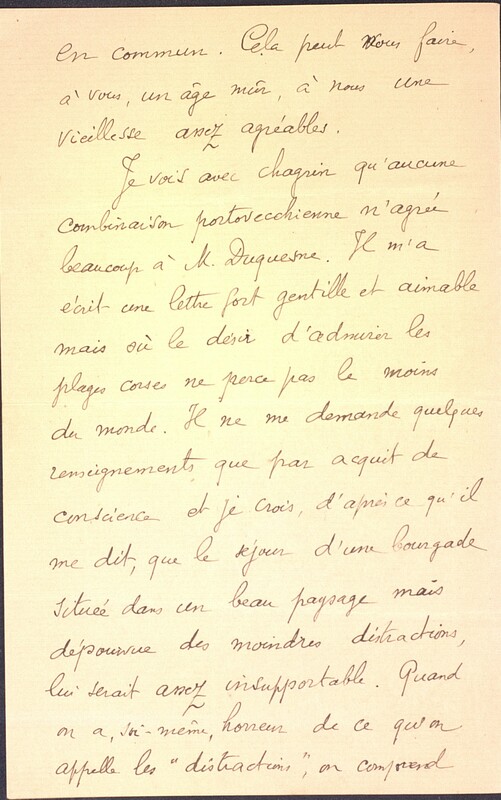 en commun. Cela peut vous faire,
à vous, un âge mûr, à nous une
vieillesse assez agréables.
Je vois avec chagrin qu'aucune
combinaison portovecchienne n'agrée
beaucoup à M. Duquesne. Il m'a
écrit une lettre fort gentille et aimable
mais où le désir d'admirer les
plages corses ne perce pas le moins
du monde. Il ne me demande quelques
renseignements que par acquit de
conscience et je crois, d'après ce qu'il
me dit, que le séjour d'une bourgade
située dans un beau paysage mais
dépourvue des moindres distractions,
lui serait assez insupportable. Quand
on a, soi-même, horreur de ce qu'on
appelle les "distractions", on comprend